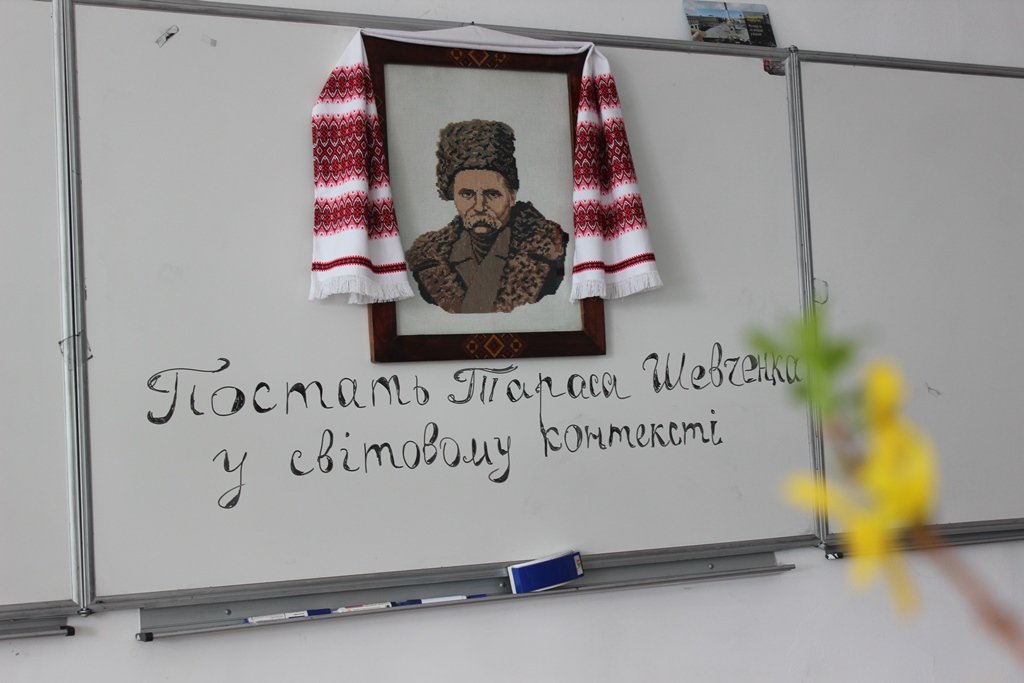 Постать Тараса Шевченка
у світовому контексті